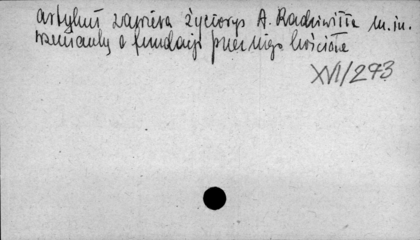 artykuł zawiera życiorys A. Radziwiłła m.in.
wzmianki o fundacji przez niego kościoła
XVI/273